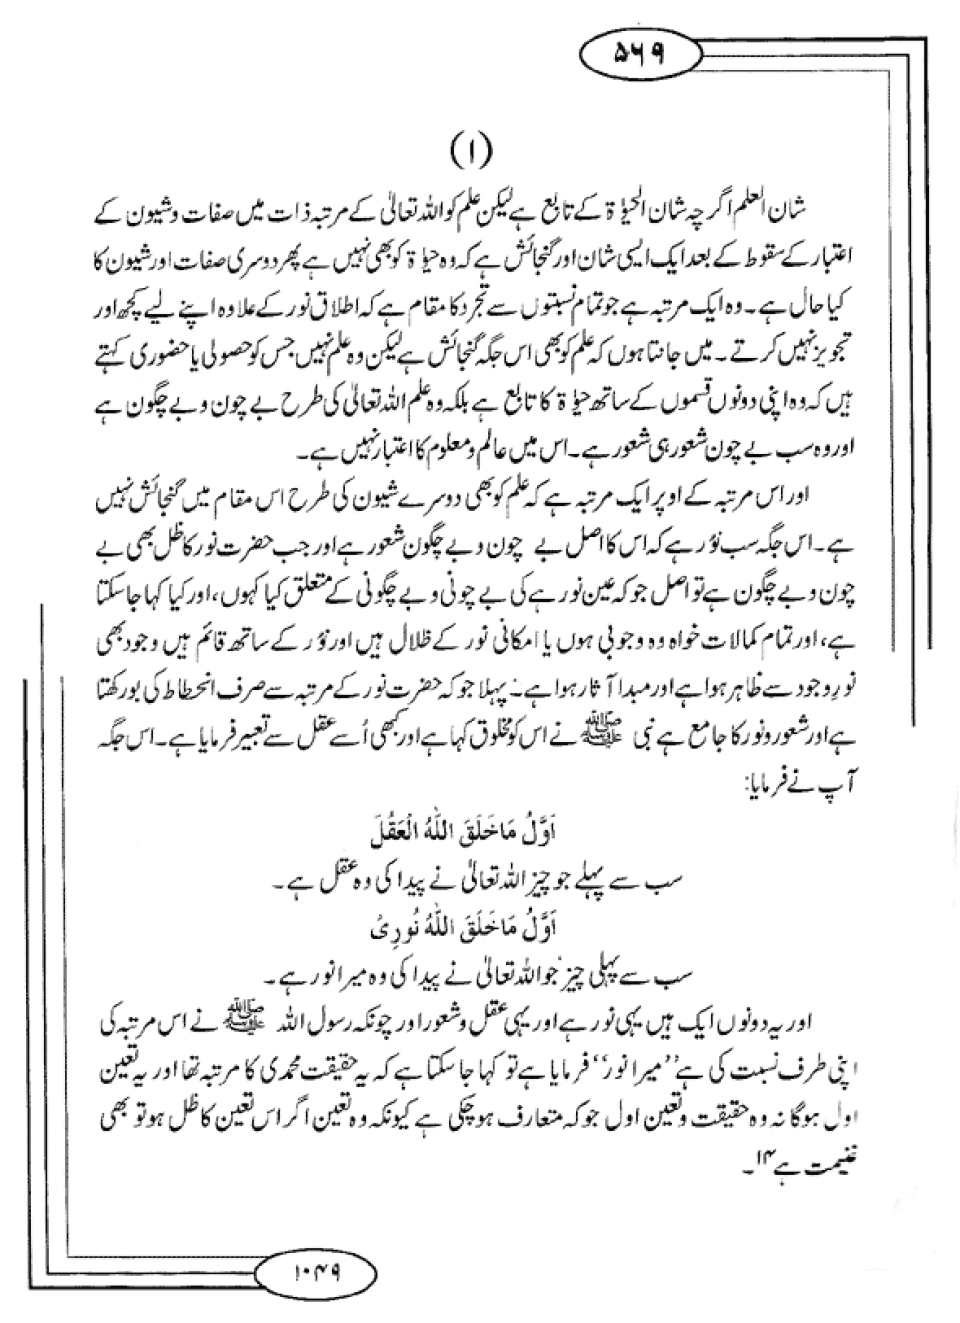 ۵۶۹
(۱)
شان العلم اگرچہ شان الحیٰوۃ کے تابع ہے لیکن علم کو اللہ تعالیٰ کے مرتبہ ذات میں صفات و شیون کے
اعتبار کے سقوط کے بعد ایک ایسی شان اور گنجائش ہے کہ وہ حیٰوۃ کو بھی نہیں ہے پھر دوسری صفات اور شیون کا
کیا حال ہے۔ وہ ایک مرتبہ ہے جو تمام نسبتوں سے تجرد کا مقام ہے کہ اطلاق نور کے علاوہ اپنے لیے کچھ اور
تجویز نہیں کرتے۔ میں جانتا ہوں کہ علم کو بھی اس جگہ گنجائش ہے لیکن وہ علم نہیں جس کو حصولی یا حضوری کہتے
ہیں کہ وہ اپنی دونوں قسموں کے ساتھ حیٰوۃ کا تابع ہے بلکہ وہ علم اللہ تعالیٰ کی طرح بے چون و بے چگون ہے
اور وہ سب بے چون شعور ہی شعور ہے۔ اس میں عالم و معلوم کا اعتبار نہیں ہے۔
اور اس مرتبہ کے اوپر ایک مرتبہ ہے کہ علم کو بھی دوسرے شیون کی طرح اس مقام میں گنجائش نہیں
ہے۔ اس جگہ سب نور ہے کہ اس کا اصل بے چون و بے چگون شعور ہے اور جب حضرت نور کا ظل بھی بے
چون و بے چگون ہے تو اصل جو کہ عین نور ہے کی بے چونی و بے چگونی کے متعلق کیا کہوں، اور کیا کہا جا سکتا
ہے، اور تمام کمالات خواہ وہ وجوبی ہوں یا امکانی نور کے ظلال ہیں اور نور کے ساتھ قائم ہیں وجود بھی
نورِ وجود سے ظاہر ہوا ہے اور مبدا آثار ہوا ہے۔ پہلا جو کہ حضرت نور کے مرتبہ سے صرف انحطاط کی بو رکھتا
ہے اور شعور و نور کا جامع ہے نبی ﷺ نے اس کو مخلوق کہا ہے اور کبھی اُسے عقل سے تعبیر فرمایا ہے۔ اس جگہ
آپ نے فرمایا:
اَوَّلُ مَا خَلَقَ اللّٰهُ الْعَقْلَ
سب سے پہلے جو چیز اللہ تعالیٰ نے پیدا کی وہ عقل ہے۔
اَوَّلُ مَا خَلَقَ اللّٰهُ نُورِیْ
سب سے پہلی چیز جو اللہ تعالیٰ نے پیدا کی وہ میرا نور ہے۔
اور یہ دونوں ایک ہیں یہی نور ہے اور یہی عقل و شعور اور چونکہ رسول اللہ ﷺ نے اس مرتبہ کی
اپنی طرف نسبت کی ہے ’’میرا نور‘‘ فرمایا ہے تو کہا جا سکتا ہے کہ یہ حقیقت محمدی کا مرتبہ تھا اور یہ تعین
اول ہوگا نہ وہ حقیقت و تعین اول جو کہ متعارف ہو چکی ہے کیونکہ وہ تعین اگر اس تعین کا ظل ہو تو بھی
غنیمت ہے ۱۴۔
۱۰۴۹